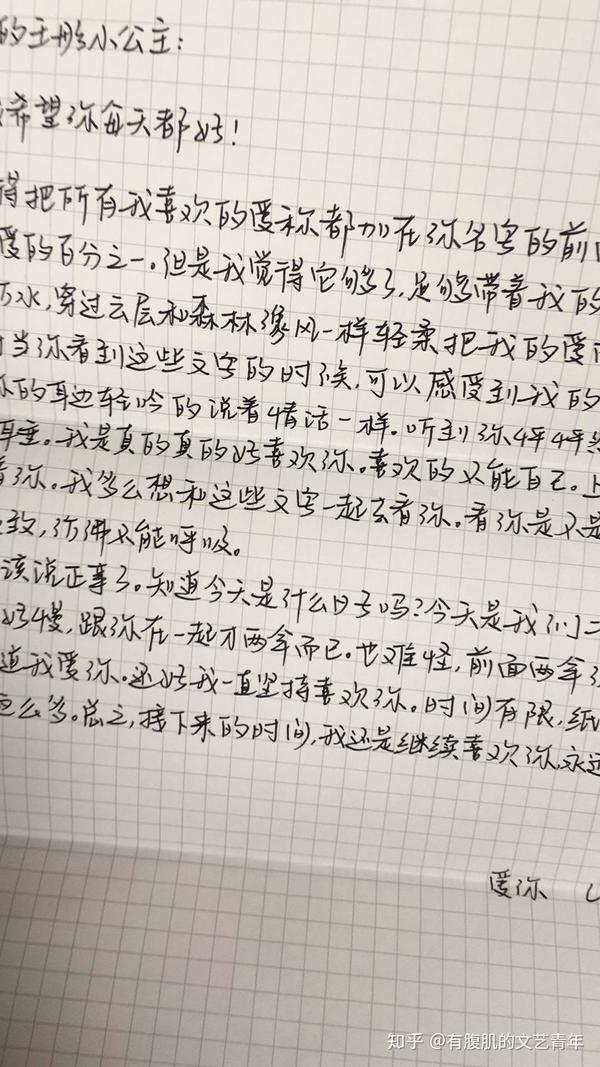 的王彤小公主:
希望你每天都好!
得把所有我喜欢的爱称都加在你名字的前
爱的百分之一。但是我觉得它够了,足够带着我的
万水,穿过云层和森林像风一样轻柔把我的爱
当你看到这些文字的时候,可以感受到我的
你的耳边轻吟的说着情话一样。听到你怦怦
耳垂。我是真的真的好喜欢你。喜欢的不能自已。上
看你。我多么想和这些文字一起去看你。看你是不是
致,仿佛不能呼吸。
该说正事了。知道今天是什么日子吗?今天是我们二
好慢,跟你在一起才两年而已。也难怪,前面两年
道我爱你。还好我一直坚持喜欢你。时间有限,纸
么多。总之,接下来的时间,我还是继续喜欢你,永远
爱你
知乎 @有腹肌的文艺青年